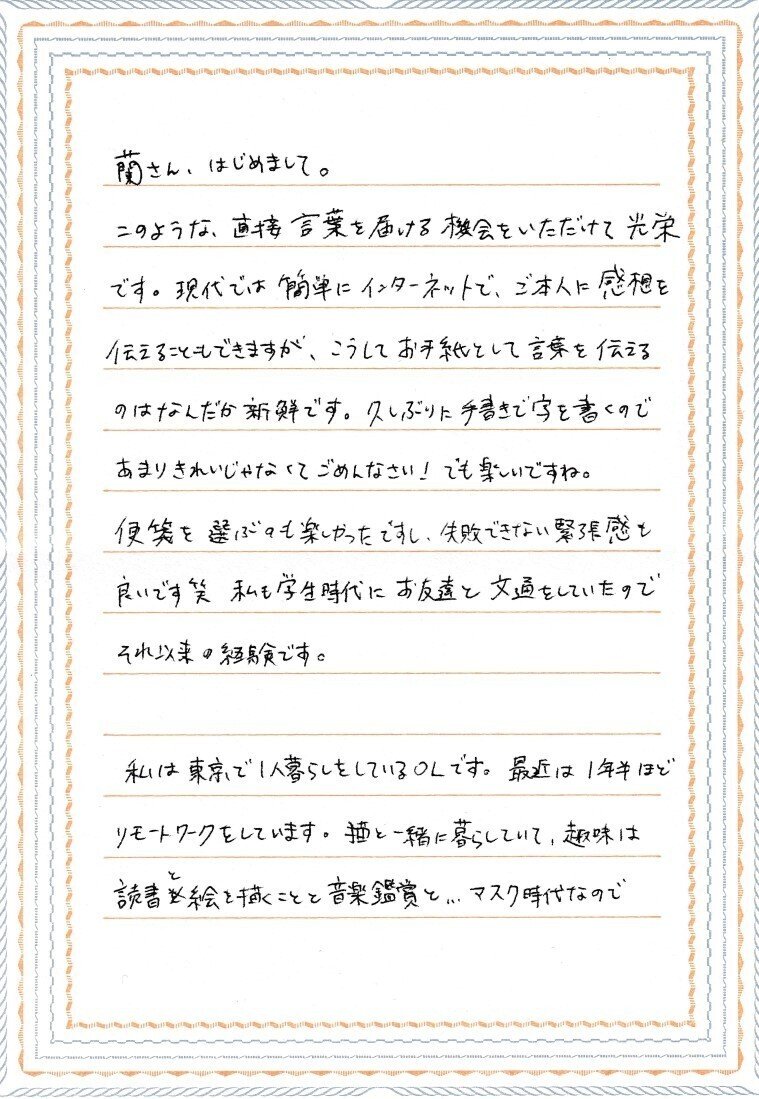 蘭さん、はじめまして。
このような、直接言葉を届ける機会をいただけて光栄
です。現代では簡単にインターネットで、ご本人に感想を
伝えることもできますが、こうしてお手紙として言葉を伝える
のはなんだか新鮮です。久しぶりに手書きで字を書くので
あまりきれいじゃなくてごめんなさい!でも楽しいですね。
便箋を選ぶのも楽しかったですし、失敗できない緊張感も
良いです笑 私も学生時代にお友達と文通をしていたので
それ以来の経験です。
私は東京で1人暮らしをしているOLです。最近は1年半ほど
リモートワークをしています。猫と一緒に暮らしていて、趣味は
読書と絵を描くことと音楽鑑賞と...マスク時代なので